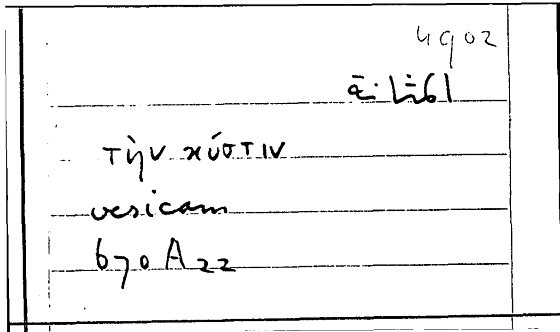 4902
المثانة
τὴν κύστιν
vesicam
670 A 22